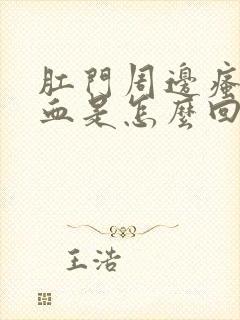 肛門周邊瘙
血是怎麼回
王浩